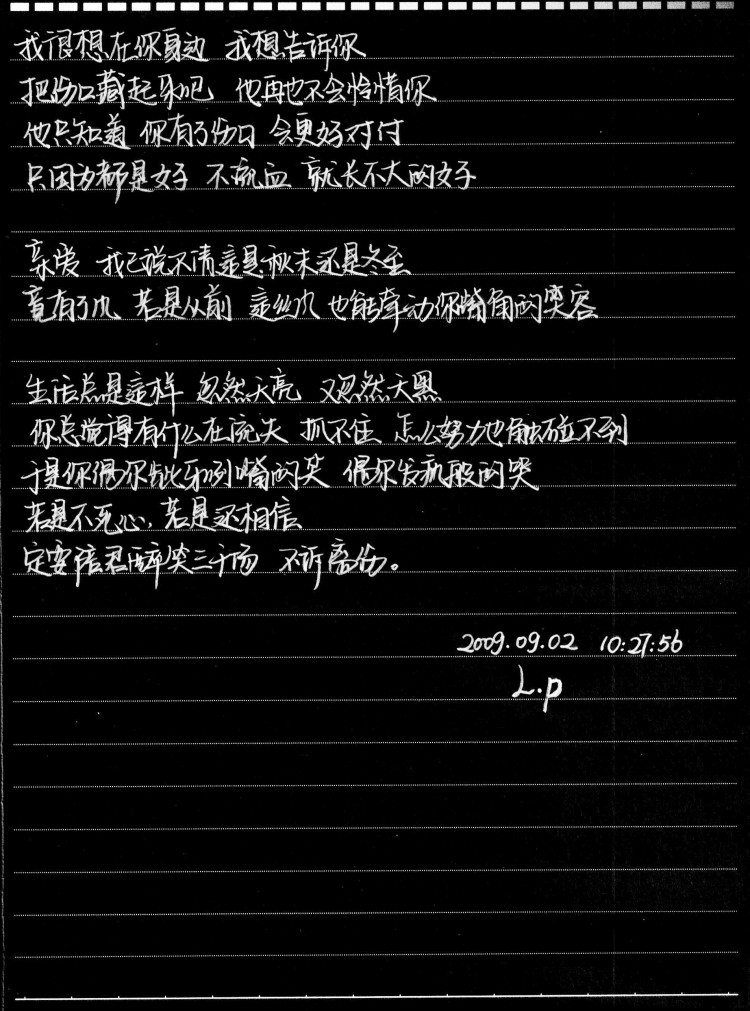 我很想在你身边 我想告诉你
把伤口藏起来吧 他再也不会怜惜你
他只知道 你有了伤口 会更好对付
只因为都是女子 不流血 就长不大的女子
亲爱 我已说不清这是秋末还是冬至
竟有了风 若是从前 这丝风 也能牵动你嘴角的笑容
生活总是这样 忽然天亮 又忽然天黑
你总觉得有什么在流失 抓不住 怎么努力也触碰不到
于是你偶尔呲牙咧嘴的笑 偶尔发疯般的哭
若是不死心，若是还相信
定要陪君醉笑三千场 不诉离伤。
2009.09.02 10:27:56
L.p